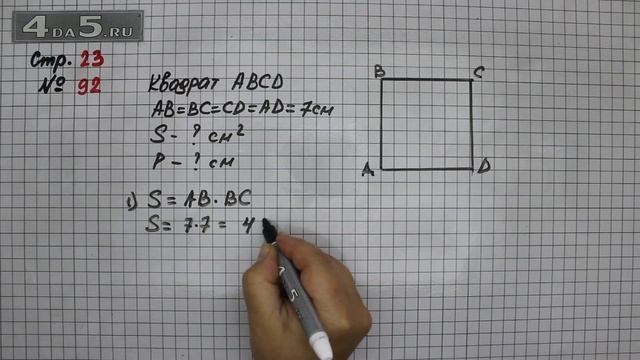 4DA5.RU
Стр. 23
№ 92
Квадрат ABCD
AB=BC=CD=AD=7см
S - ? см²
P - ? см
1) S = AB · BC
S = 7·7 = 4
B C
A D